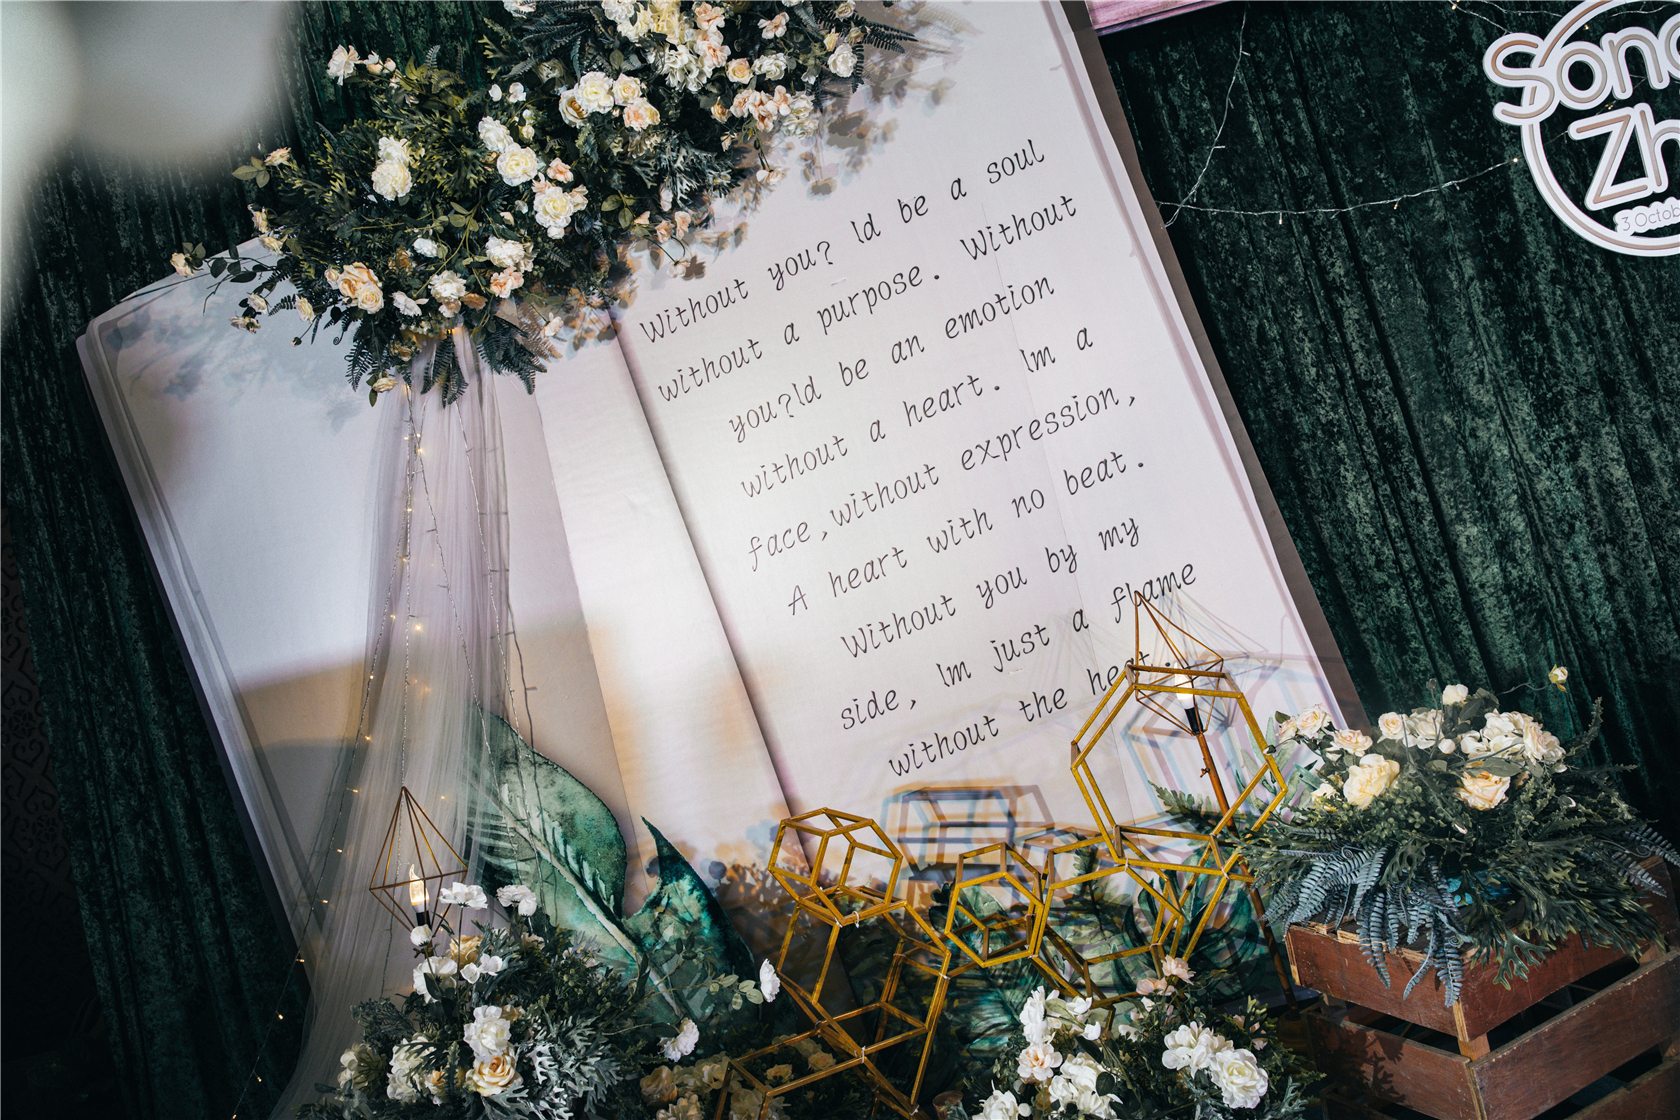 Without you? Id be a soul
without a purpose. Without
you?Id be an emotion
without a heart. Im a
face,without expression,
A heart with no beat.
Without you by my
side, Im just a flame
without the heat.